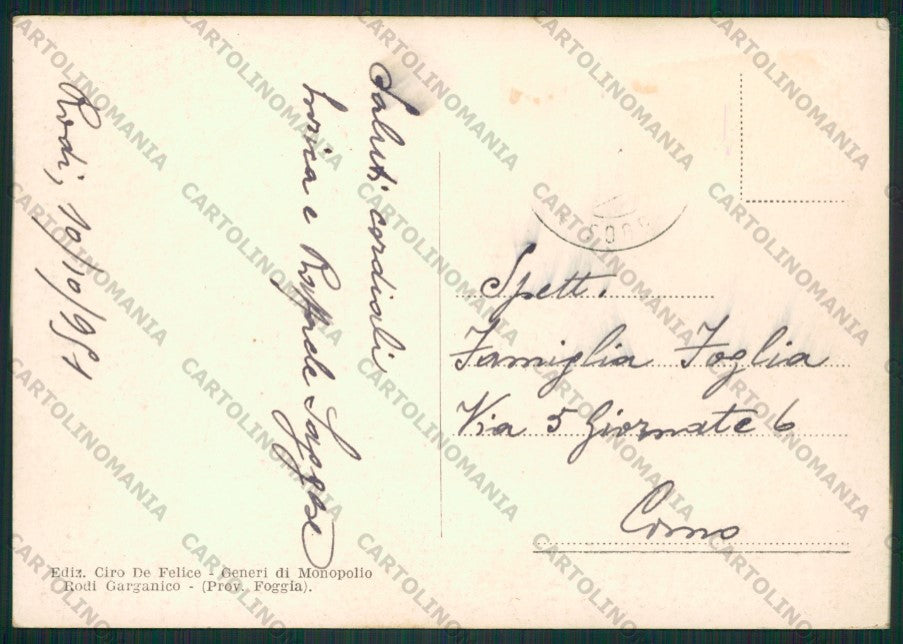 Rodi, 10/10/951
Saluti cordiali
e Raffaele
Spett.
Famiglia Foglia
Via 5 Giornate 6
Como
Ediz. Ciro De Felice - Generi di Monopolio
Rodi Garganico - (Prov. Foggia).
CARTOLINOMANIA